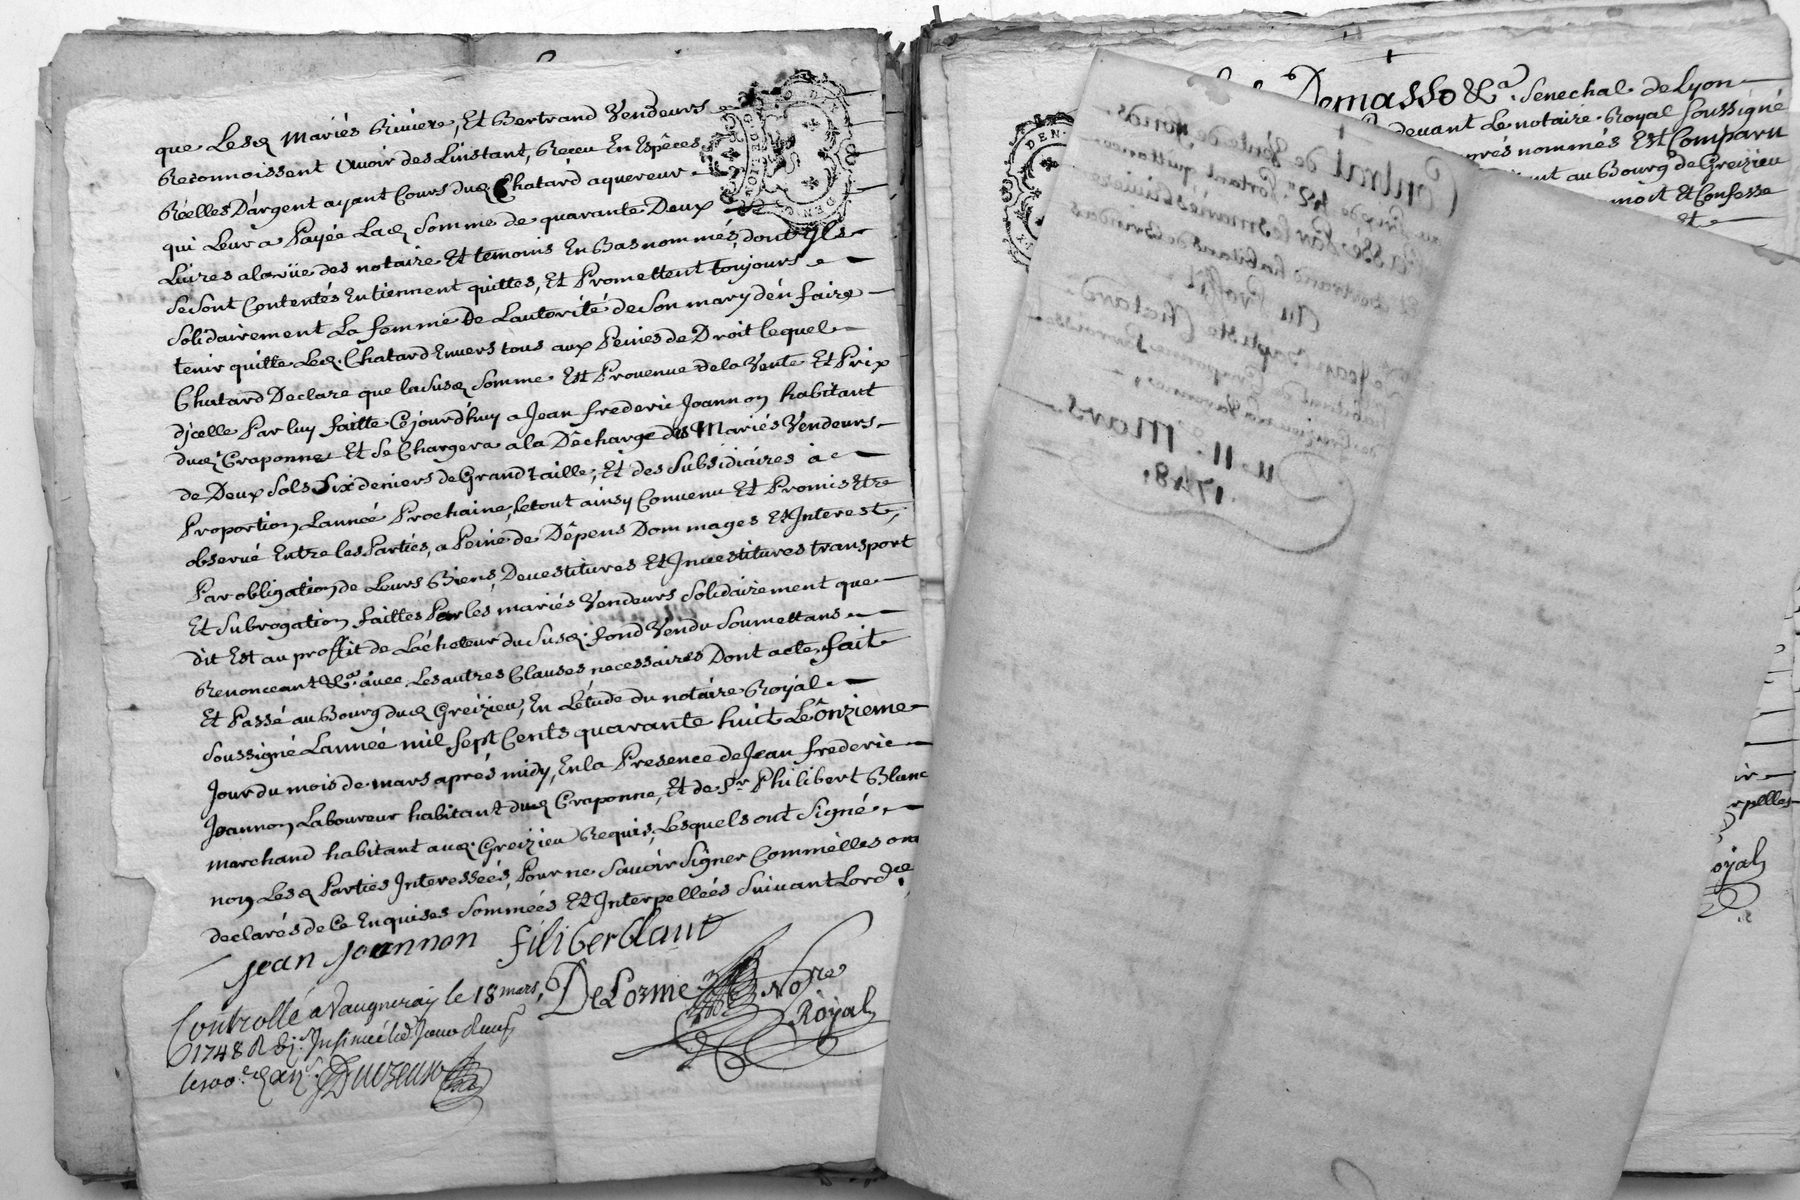 que Lesd. Mariés Riviere, Et Bertrand Vendeurs
Reconnoissent avoir des Linstant, Receu En Espêces
Réelles D'argent ayant Cours dud. Chatard aquereur
qui Leur a Payée Lad. Somme de quarante Deux
Livres ala vüe des notaire Et temoins En Bas nommés, dont ils
se sont Contentés En tiennent quittes, Et Promettent toujours
Solidairement La femme De Lautorité de Son mary d'en faire
tenir quitte Led. Chatard Envers tous aux Peines de Droit lequel
Chatard Declare que la Susd. Somme Est Provenue de la Vente Et Prix
d'jcelle Par luy faitte Cejourd'huy a Jean frederic Joannon habitant
dud. Craponne Et Se Chargera a la Décharge des Mariés Vendeurs
de Deux Sols Six deniers de Grand taille, Et des Subsidiaires a
Proportion Lannée Prochaine, le tout ainsy Convenu Et Promis Etre
observé Entre les Parties, a Peine de Dêpens Dommages Et Interest,
Par obligation de Leurs Biens, Devestitures Et Investitures transport
Et Subrogation faittes Par les mariés Vendeurs Solidairement que
dit Est au proffit de Lácheteur du Susd. fond Vendu Soumettans
Renonceant &a. avec Les autres Clauses necessaires Dont acte, fait
Et Passé au Bourg dud. Greizieu, En Létude du notaire Royal
Soussigné Lannée mil Sept Cents quarante huit Le Onzieme
Jour du mois de mars aprés midy, En la Presence de Jean frederic
Joannon Laboureur habitant dud. Craponne, Et de Sr. Philibert Blanc
marchand habitant aud. Greizieu Requis, Lesquels ont Signé
non Lesd. Parties Interessées, Pour ne Savoir Signer Comme elles ont
declarés de Ce Enquises Sommées Et Interpellées Suivant Lordce
Jean Joannon filiber blanc
DeLorme Nore
Royal
Controllé a Vaugneray le 18 mars,
1748 R
Demasso &a. Senechal de Lyon
devant Le notaire Royal Soussigné
aprés nommés Est Comparu
au Bourg de Greizieu
Et Confesse
Et
Contrat de Vente de fonds
au Prix de 42# Portant quittance
Passé Par les mariés Riviere
Et Bertrand habitans de Brindas
Au Proffit
de Jean Baptiste Chatard
habitant de Craponne Parroisse
de Greizieu La Varenne
Du 11. Mars.
1748.
oyal